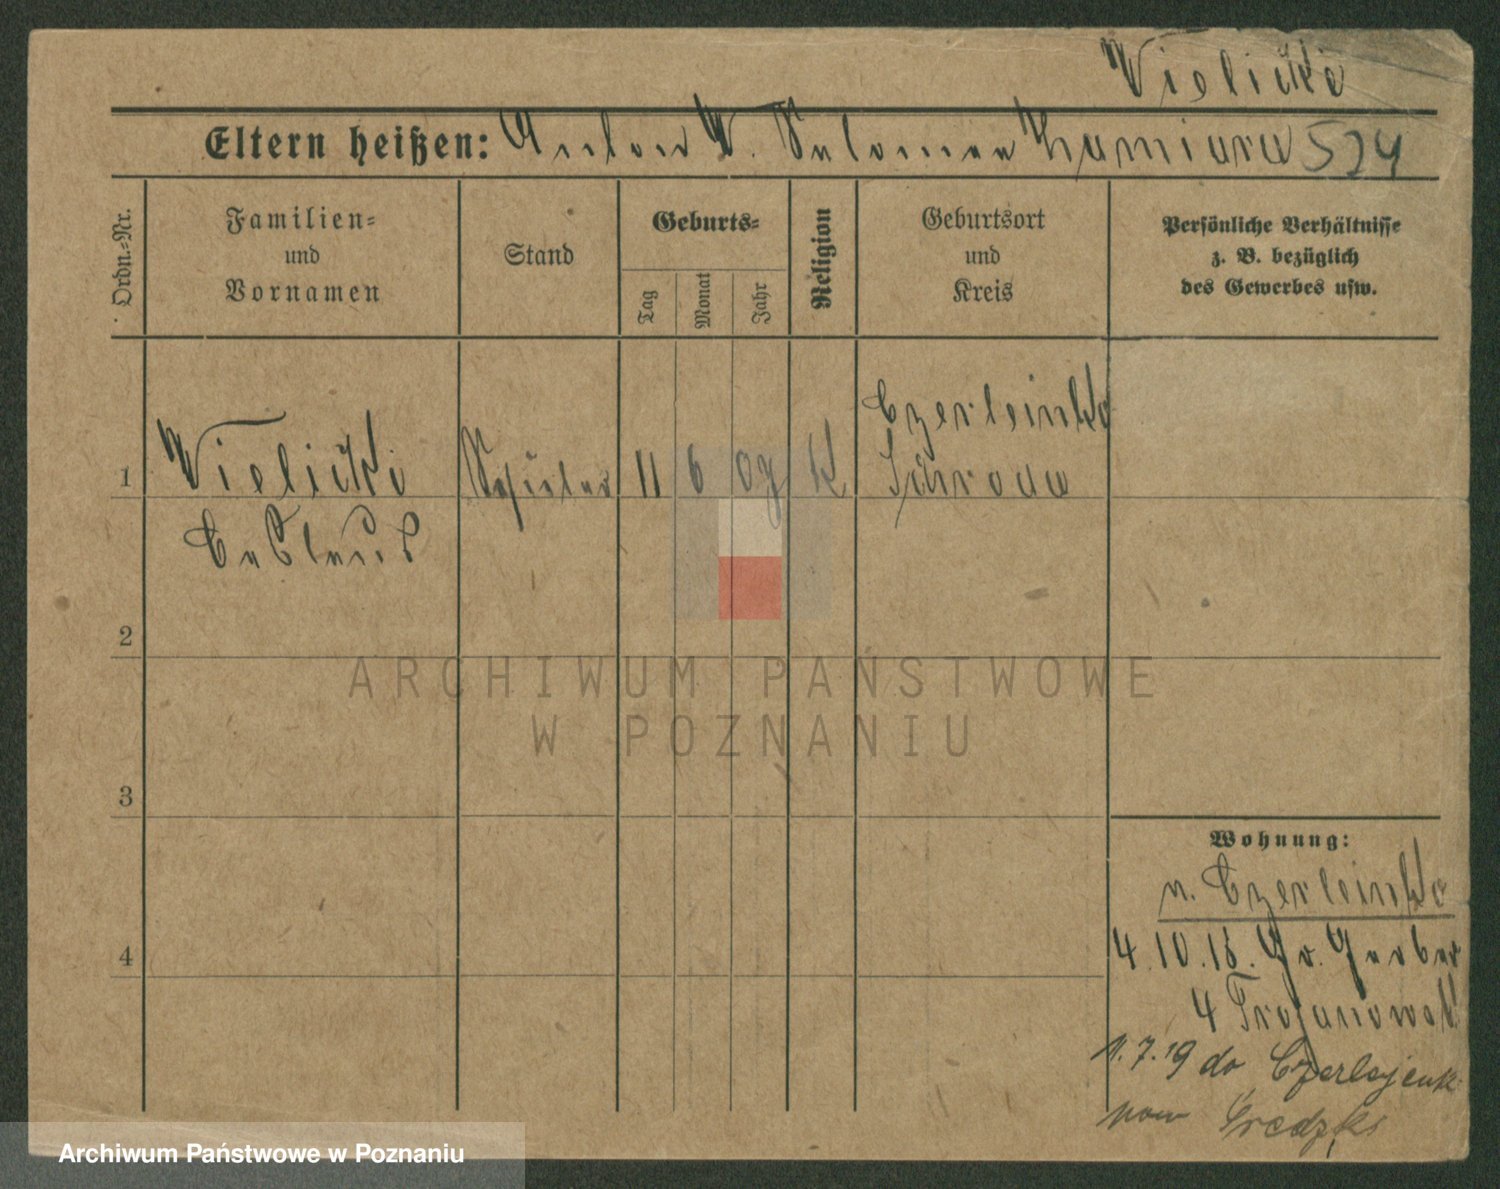 Wielicki
Eltern heißen: Anton W. Salomea 524
Ordn.-Nr.
Familien-
und
Vornamen
Stand
Geburts-
Tag
Monat
Jahr
Religion
Geburtsort
und
Kreis
Persönliche Verhältnisse
z. B. bezüglich
des Gewerbes usw.
1
Wielicki
Schüler
11
6
09
K
Czerleinko
Schroda
2
3
4
ARCHIWUM PAŃSTWOWE
W POZNANIU
Wohnung:
v. Czerleinko
4.10.18. Gr. Gerber
4
1.7.19 do
pow Średzki
Archiwum Państwowe w Poznaniu